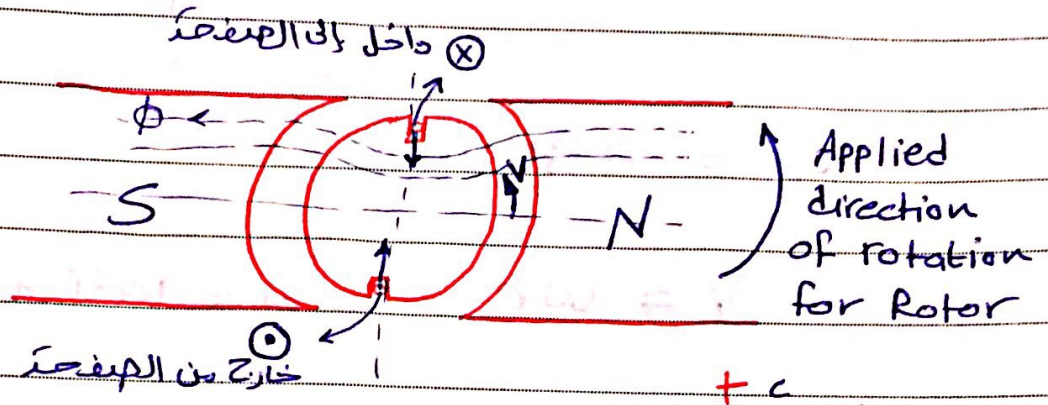 داخل إلى الصفحة ⊗
ϕ
Applied
direction
of rotation
for Rotor
S
N
خارج من الصفحة ⊙
+ c